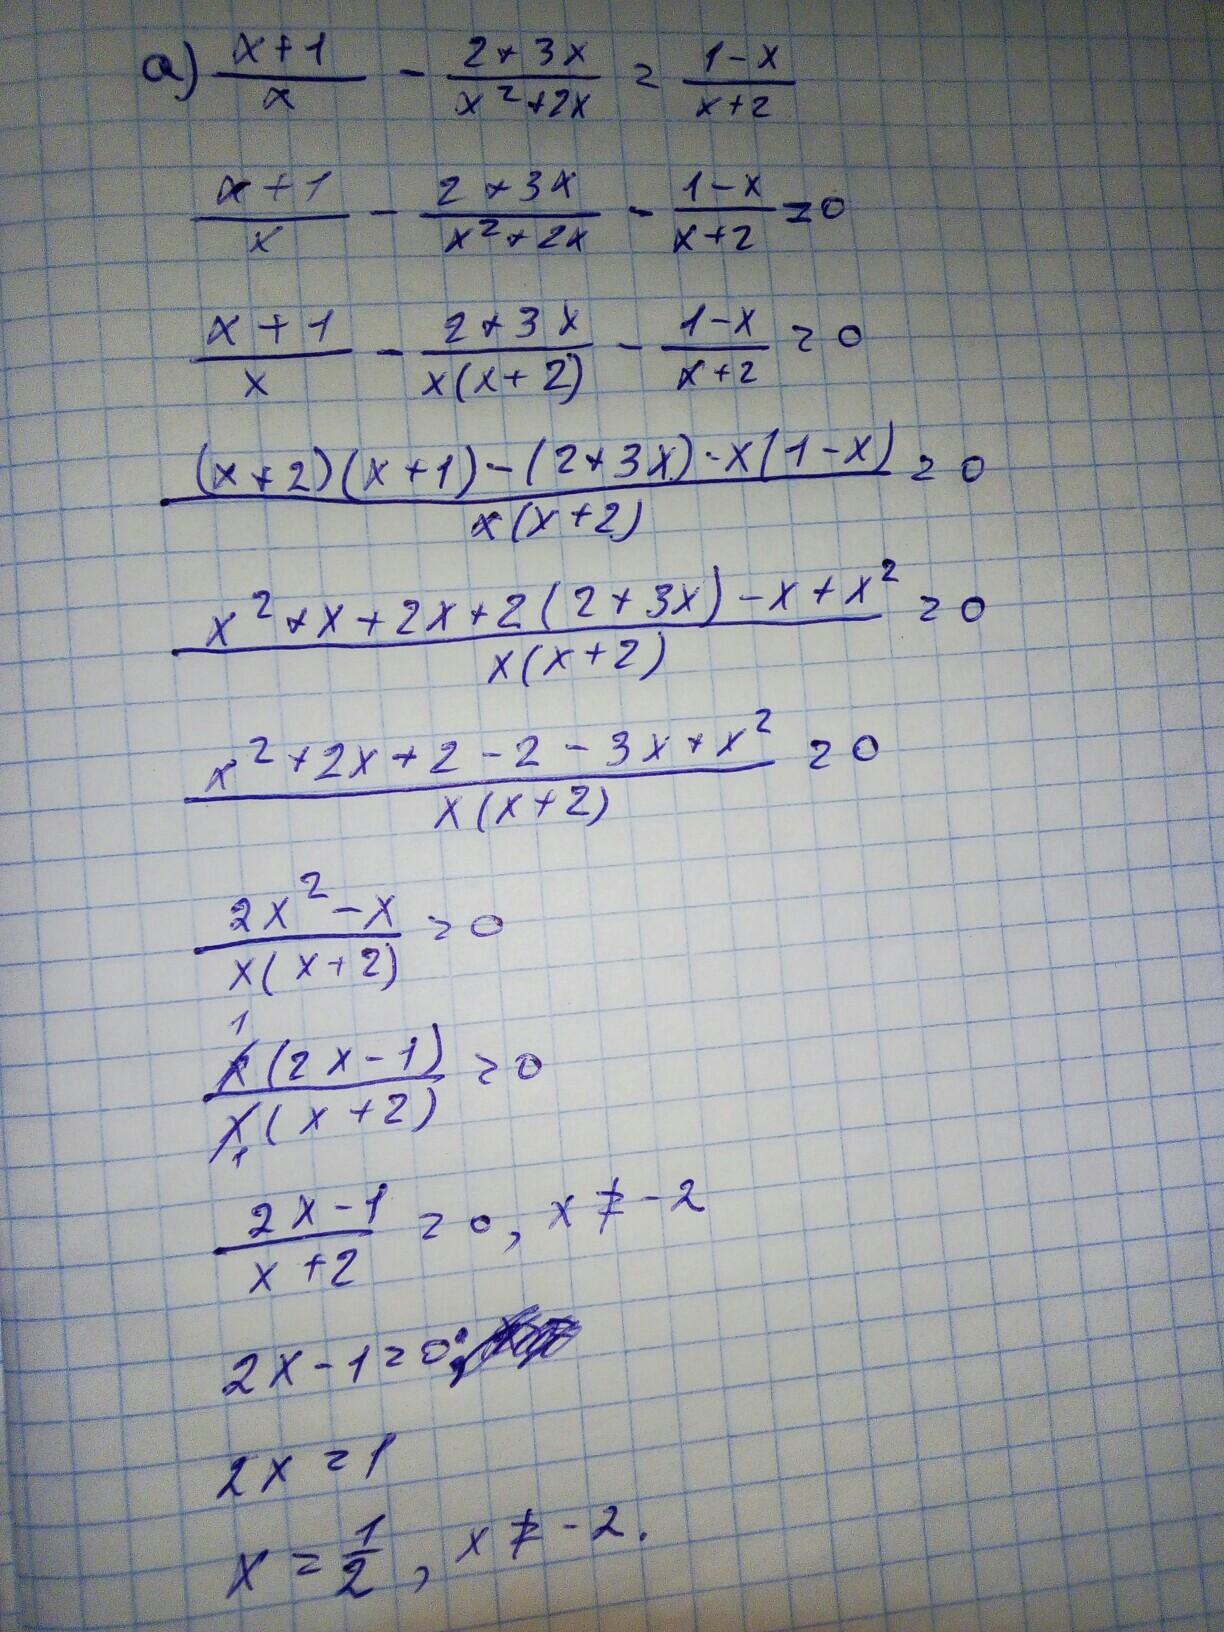 а) (x+1)/x - (2+3x)/(x²+2x) = (1-x)/(x+2)
(x+1)/x - (2+3x)/(x²+2x) - (1-x)/(x+2) = 0
(x+1)/x - (2+3x)/(x(x+2)) - (1-x)/(x+2) = 0
((x+2)(x+1)-(2+3x)-x(1-x))/(x(x+2)) = 0
(x²+x+2x+2(2+3x)-x+x²)/(x(x+2)) = 0
(x²+2x+2-2-3x+x²)/(x(x+2)) = 0
(2x²-x)/(x(x+2)) = 0
1
(x(2x-1))/(x(x+2)) = 0
1
(2x-1)/(x+2) = 0, x ≠ -2
2x-1=0;
2x=1
x = 1/2, x ≠ -2.